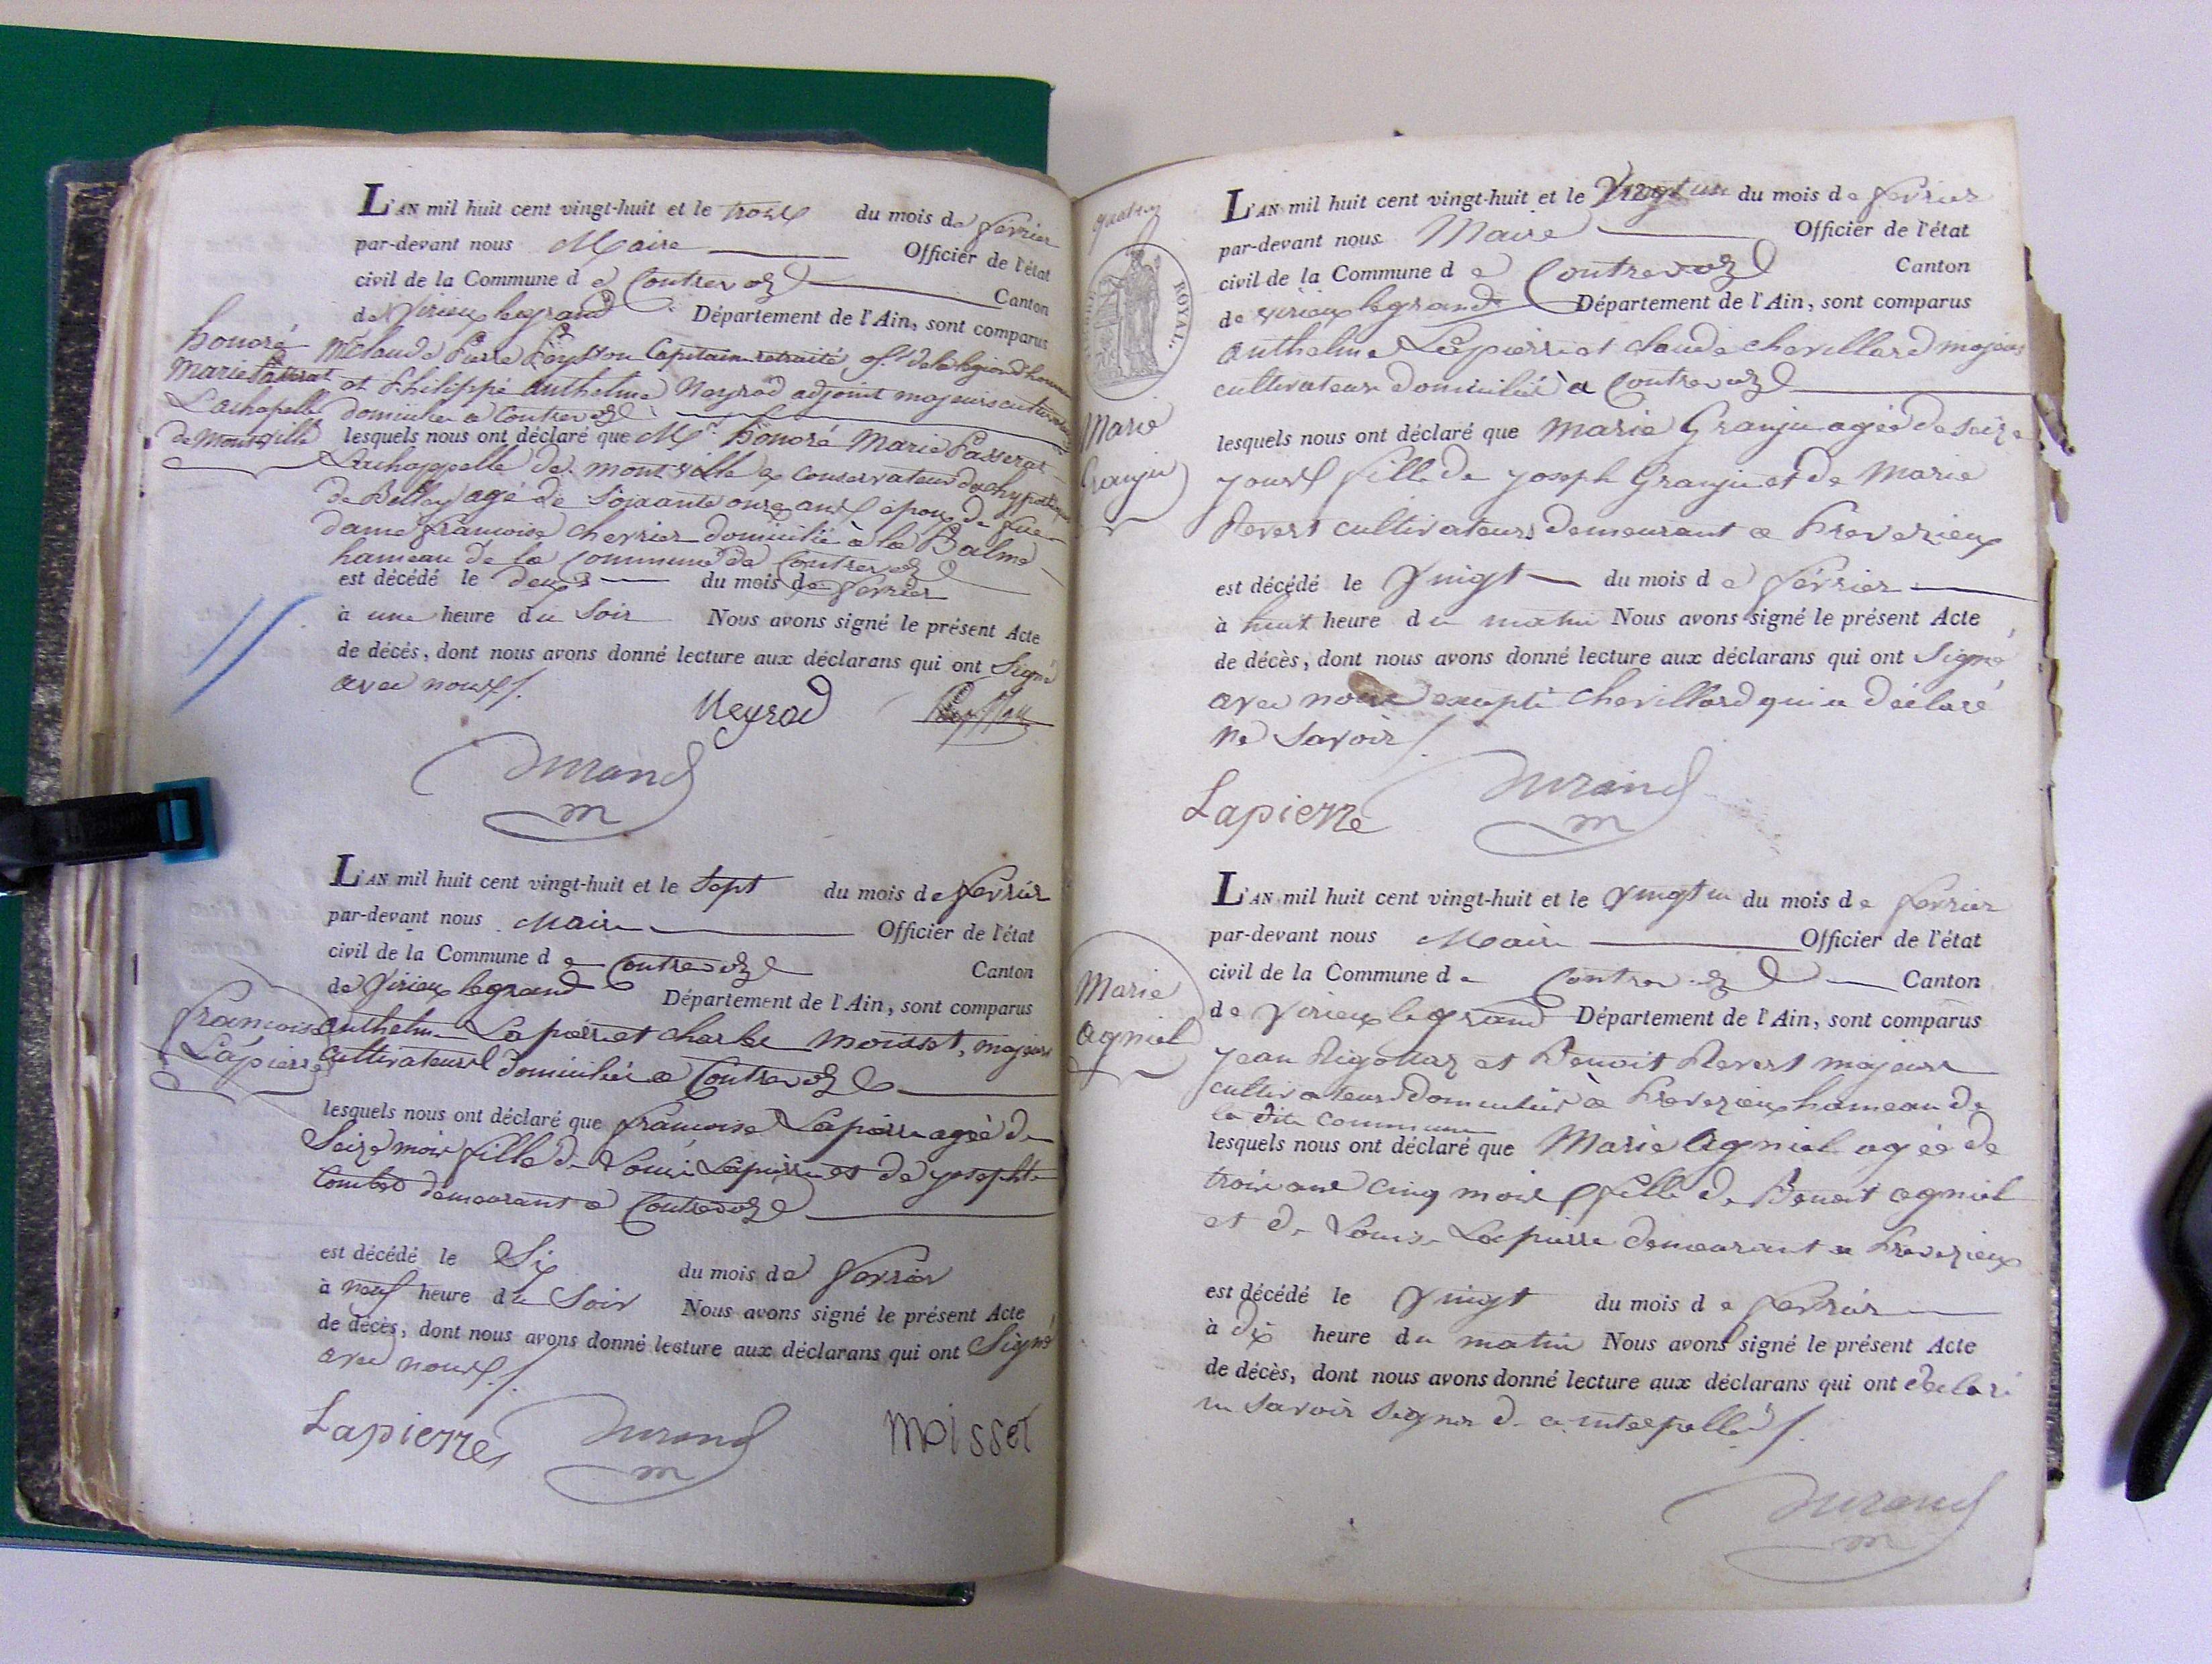 L'AN mil huit cent vingt-huit et le trois du mois de fevrier
par-devant nous Maire Officier de l'état
civil de la Commune de Contrevoz Canton
de Virieu legrand Département de l'Ain, sont comparus
honoré
Marie Passerat
Lachapelle
de Montville
Mr Claude Pierre Peysson Capitaine retraité of. de la legion d'honneur
et Philippe Anthelme Neyrod adjoint majeurs cultivateurs
domicilies a Contrevoz
lesquels nous ont déclaré que Mr. honoré Marie Passerat
Lachappelle de montville ex conservateur des hypotheques
de Belley agé de soixante onze ans epoux de feue
dame francoise Chevrier domicilié à la Balme
hameau de la commune de Contrevoz
est décédé le deux du mois de fevrier
à une heure du soir Nous avons signé le présent Acte
de décés, dont nous avons donné lecture aux déclarans qui ont Signé
avec nous
Neyrod Peysson
Durand
m
L'AN mil huit cent vingt-huit et le Sept du mois de fevrier
par-devant nous Maire Officier de l'état
civil de la Commune de Contrevoz Canton
de Virieu legrand Département de l'Ain, sont comparus
francoise
Lapierre
anthelme Lapierre et charle moisset, majeurs
cultivateurs domiciliés a Contrevoz
lesquels nous ont déclaré que francoise Lapierre ageé de
Seize mois fille de Louis Lapierre et de josephte
Combet demeurant a Contrevoz
est décédé le Six du mois de fevrier
à neuf heure du Soir Nous avons signé le présent Acte
de décès, dont nous avons donné lecture aux déclarans qui ont Signé
avec nous
Lapierre Durand Moisset
m
ROYAL.
L'AN mil huit cent vingt-huit et le Vingt un du mois de fevrier
par-devant nous Maire Officier de l'état
civil de la Commune de Contrevoz Canton
de virieu legrand Département de l'Ain, sont comparus
anthelme Lapierre et claude chevillard majeurs
cultivateurs domiciliés a Contrevoz
Marie
Granju
lesquels nous ont déclaré que Marie Granju ageé de seize
jours fille de joseph Granju et de Marie
Revert cultivateurs demeurant a Preveyzieux
est décédé le Vingt du mois de fevrier
à huit heure du matin Nous avons signé le présent Acte
de décès, dont nous avons donné lecture aux déclarans qui ont Signé
avec nous excepté chevillard qui a déclaré
ne savoir
Lapierre Durand
m
L'AN mil huit cent vingt-huit et le Vingt un du mois de fevrier
par-devant nous Maire Officier de l'état
civil de la Commune de Contrevoz Canton
de Virieu legrand Département de l'Ain, sont comparus
Marie
agniel
jean Rigottaz et Benoit Revert majeurs
cultivateurs domiciliés à Preveyzieux hameau de
la dite commune
lesquels nous ont déclaré que Marie Agniel agée de
trois ans cinq mois fille de Benoit agniel
et de Louise Lapierre demeurant a Preveyzieux
est décédé le Vingt du mois de fevrier
à dix heure du matin Nous avons signé le présent Acte
de décès, dont nous avons donné lecture aux déclarans qui ont déclaré
ne savoir signer de ce interpellés
Durand
m